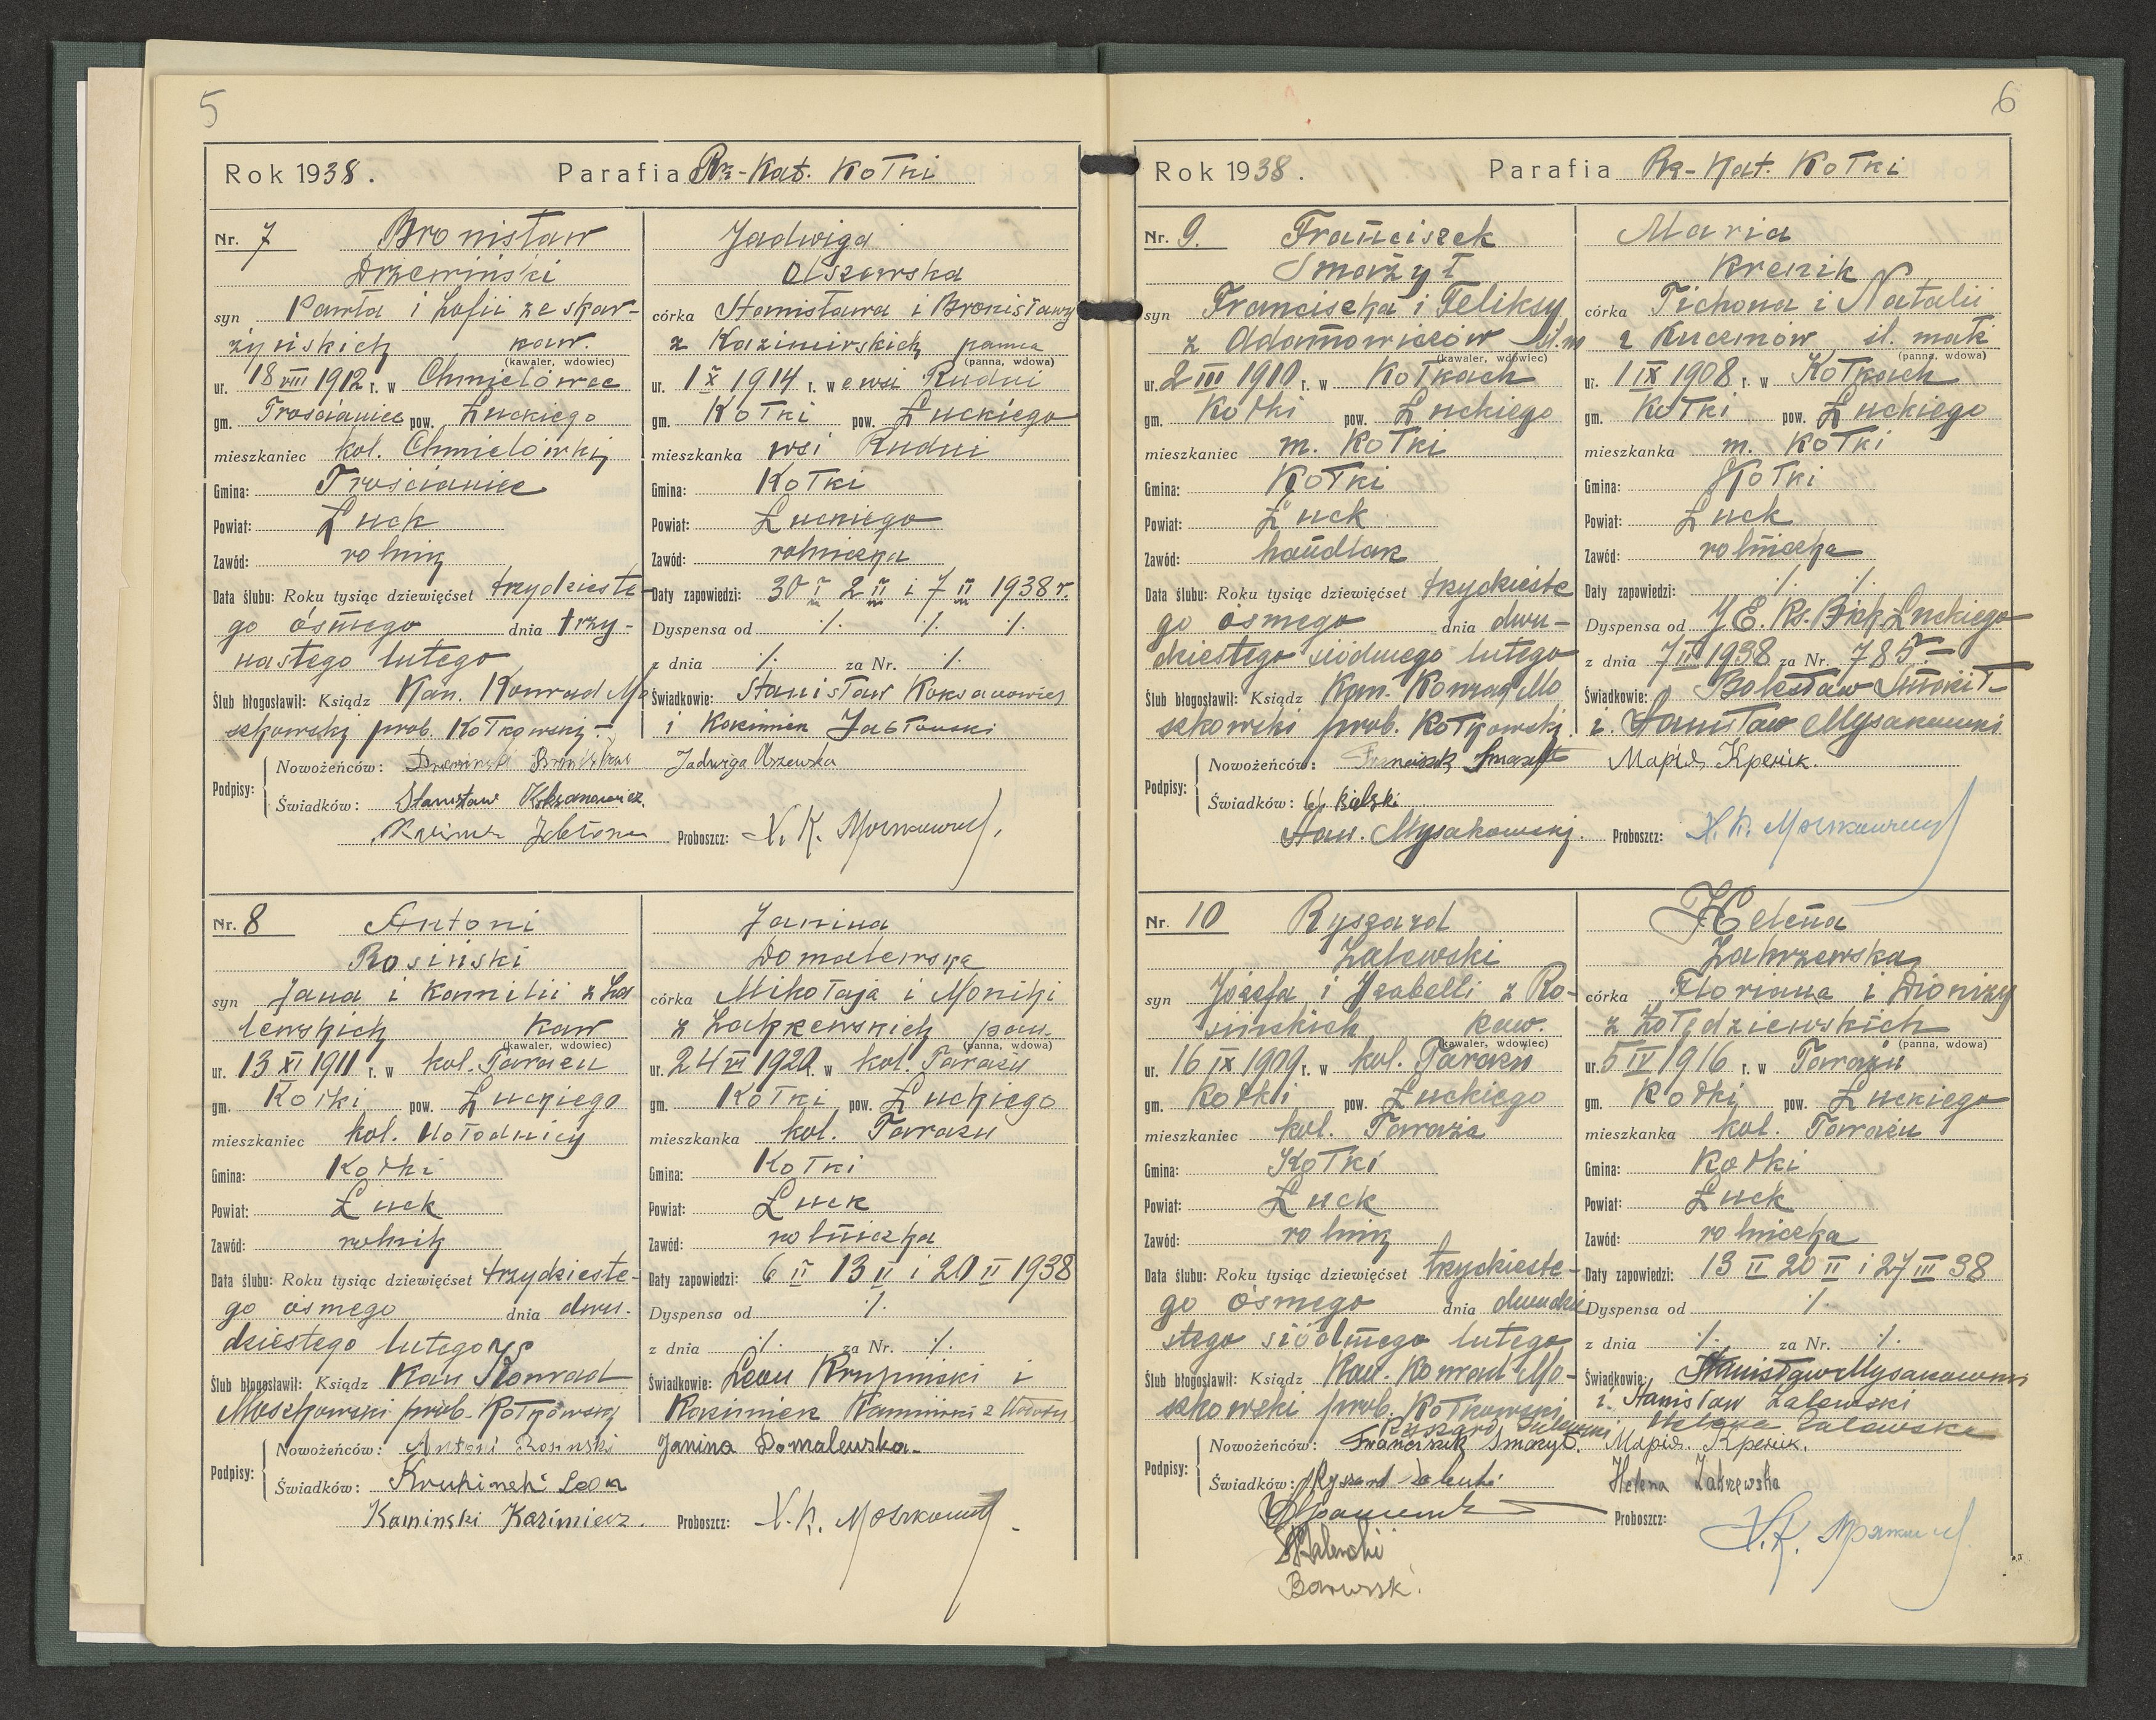 5
Rok 1938. Parafia Rz-Kat. Kołki
Nr. 7 Bronisław
Drzewiński
syn Pawła i Zofii ze Skar-
żyńskich kaw.
(kawaler, wdowiec)
ur. 18 VIII 1912 r. w Chmielówce
gm. Trościaniec pow. Łuckiego
mieszkaniec kol. Chmielówki
Gmina: Trościaniec
Powiat: Łuck
Zawód: rolnik
Data ślubu: Roku tysiąc dziewięćset trzydzieste-
go ósmego dnia trzy-
nastego lutego
Ślub błogosławił: Ksiądz Kan. Konrad Mo
szkowski prob. Kołkowski
Jadwiga
Olszewska
córka Stanisława i Bronisławy
z Kazimirskich panna
(panna, wdowa)
ur. 1 X 1914 r. w wsi Rudni
gm. Kołki pow. Łuckiego
mieszkanka wsi Rudni
Gmina: Kołki
Powiat: Łuckiego
Zawód: rolniczka
Daty zapowiedzi: 30 I 2 II i 7 II 1938 r.
Dyspensa od ./. ./. ./.
z dnia ./. za Nr. ./.
Świadkowie: Stanisław Koksanowicz
i Kazimierz Jabłoński
Podpisy: Nowożeńców: Drzewinski Bronisław Jadwiga Olszewska
Świadków: Stanisław Koksanowicz
Proboszcz: X. K. Moszkowski
Nr. 8 Antoni
Rosiński
syn Jana i Kamilii z Za
lewskich kaw
(kawaler, wdowiec)
ur. 13 XI 1911 r. w kol. Tarażu
gm. Kołki pow. Łuckiego
mieszkaniec kol. Hołodnicy
Gmina: Kołki
Powiat: Łuck
Zawód: rolnik
Data ślubu: Roku tysiąc dziewięćset trzydzieste-
go ósmego dnia dwu-
dziestego lutego
Ślub błogosławił: Ksiądz Kan Konrad
Moszkowski prob. Kołkowski
Janina
Domalewska
córka Mikołaja i Moniki
z Zakrzewskich pan.
(panna, wdowa)
ur. 24 VI 1920 r. w kol. Tarażu
gm. Kołki pow. Łuckiego
mieszkanka kol. Tarażu
Gmina: Kołki
Powiat: Łuck
Zawód: rolniczka
Daty zapowiedzi: 6 II 13 II i 20 II 1938
Dyspensa od ./.
z dnia ./. za Nr. ./.
Świadkowie: Leon Krupiński i
Kazimierz Kamiński z
Podpisy: Nowożeńców: Antoni Rosinski Janina Domalewska
Świadków: Krupinski Leon
Kaminski Kazimierz. Proboszcz: X. K. Moszkowski
6
Rok 1938. Parafia Rz-Kat. Kołki
Nr. 9. Franciszek
Smorzył
syn Franciszka i Feliksy
z Adamowiczów śl. m
(kawaler, wdowiec)
ur. 2 III 1910 r. w Kołkach
gm. Kołki pow. Łuckiego
mieszkaniec m. Kołki
Gmina: Kołki
Powiat: Łuck
Zawód: handlarz
Data ślubu: Roku tysiąc dziewięćset trzydzieste
go ósmego dnia dwu-
dziestego siódmego lutego
Ślub błogosławił: Ksiądz Kan. Konrad Mo
szkowski prob. Kołkowski.
Maria
Krenik
córka Tichona i Natalii
z Kucenów śl. mał.
(panna, wdowa)
ur. 1 IX 1908 r. w Kołkach
gm. Kołki pow. Łuckiego
mieszkanka m. Kołki
Gmina: Kołki
Powiat: Łuck
Zawód: rolniczka
Daty zapowiedzi: ./. ./.
Dyspensa od J. E. Ks. Bisk. Łuckiego
z dnia 7 II 1938 za Nr. 785
Świadkowie: Bolesław
i Stanisław Mysakowski
Podpisy: Nowożeńców: Franciszek Smorzył Марія Креник.
Świadków:
Staw. Mysakowski. Proboszcz: X. K. Moszkowski
Nr. 10 Ryszard
Zalewski
syn Józefa i Izabelli z Ro-
sińskich kaw.
(kawaler, wdowiec)
ur. 16 IX 1909 r. w kol. Tarażu
gm. Kołki pow. Łuckiego
mieszkaniec kol. Taraża
Gmina: Kołki
Powiat: Łuck
Zawód: rolnik
Data ślubu: Roku tysiąc dziewięćset trzydzieste-
go ósmego dnia dwudzie
stego siódmego lutego
Ślub błogosławił: Ksiądz Kan. Konrad Mo-
szkowski prob. Kołkowski
Helena
Zakrzewska
córka Floriana i Dionizy
z Żołędziewskich
(panna, wdowa)
ur. 5 IV 1916 r. w Tarażu
gm. Kołki pow. Łuckiego
mieszkanka kol. Tarażu
Gmina: Kołki
Powiat: Łuck
Zawód: rolniczka
Daty zapowiedzi: 13 II 20 II i 27 III 38
Dyspensa od ./.
z dnia ./. za Nr. ./.
Świadkowie: Stanisław Mysakowski
i Stanisław Zalewski
Ryszard Zalewski Helena Zalewska
Podpisy: Nowożeńców: Franciszek Smorzył. Марія Креник.
Świadków: Ryszard Zalewski Helena Zakrzewska
Proboszcz: X. K.
Zalewski